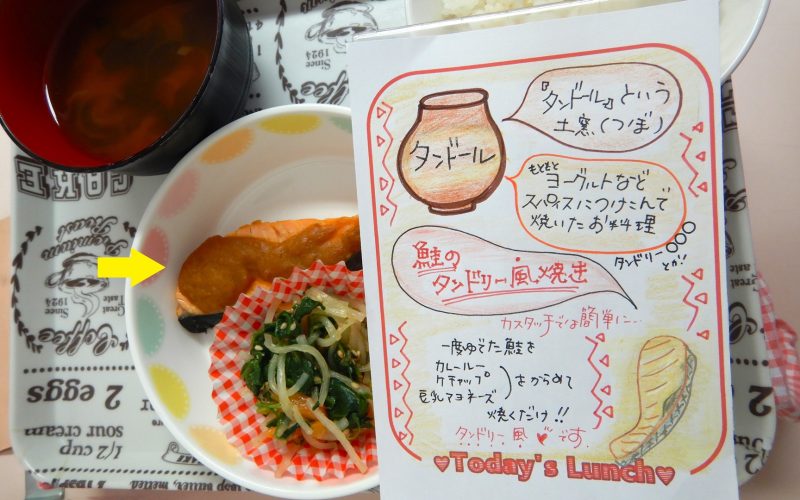 タンドール
『タンドール』という
土窯(つぼ)
もともと
ヨーグルトなど
スパイスにつけこんで
焼いたお料理
タンドリー〇〇〇
とか!!
鮭の
タンドリー風焼き
カスタッチでは簡単に…
一度ゆでた鮭を
カレールー
ケチャップ
豆乳マヨネーズ
をからめて
焼くだけ!!
タンドリー風♥です.
♥Today's Lunch♥
Since
1924
CAKE
Premium
Roast
Great
Taste
Since
1924
Coffee
2 eggs
1/2 cup
sour cream
butter, melted